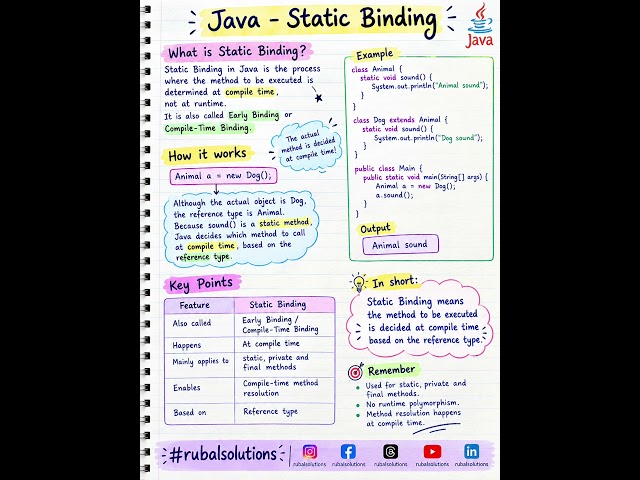 Java - Static Binding
Java
What is Static Binding?
Static Binding in Java is the process
where the method to be executed is
determined at compile time,
not at runtime.
It is also called Early Binding or
Compile-Time Binding.
The actual
method is decided
at compile time!
How it works
Animal a = new Dog();
Although the actual object is Dog,
the reference type is Animal.
Because sound() is a static method,
Java decides which method to call
at compile time, based on the
reference type.
Example
class Animal {
static void sound() {
System.out.println("Animal sound");
}
}
class Dog extends Animal {
static void sound() {
System.out.println("Dog sound");
}
}
public class Main {
public static void main(String[] args) {
Animal a = new Dog();
a.sound();
}
}
Output
Animal sound
Key Points
Feature Static Binding
Also called Early Binding /
Compile-Time Binding
Happens At compile time
Mainly applies to static, private and
final methods
Enables Compile-time method
resolution
Based on Reference type
In short:
Static Binding means
the method to be executed
is decided at compile time
based on the reference type.
Remember
• Used for static, private and
final methods.
• No runtime polymorphism.
• Method resolution happens
at compile time.
#rubalsolutions
rubalsolutions rubalsolutions rubalsolutions rubalsolutions rubalsolutions